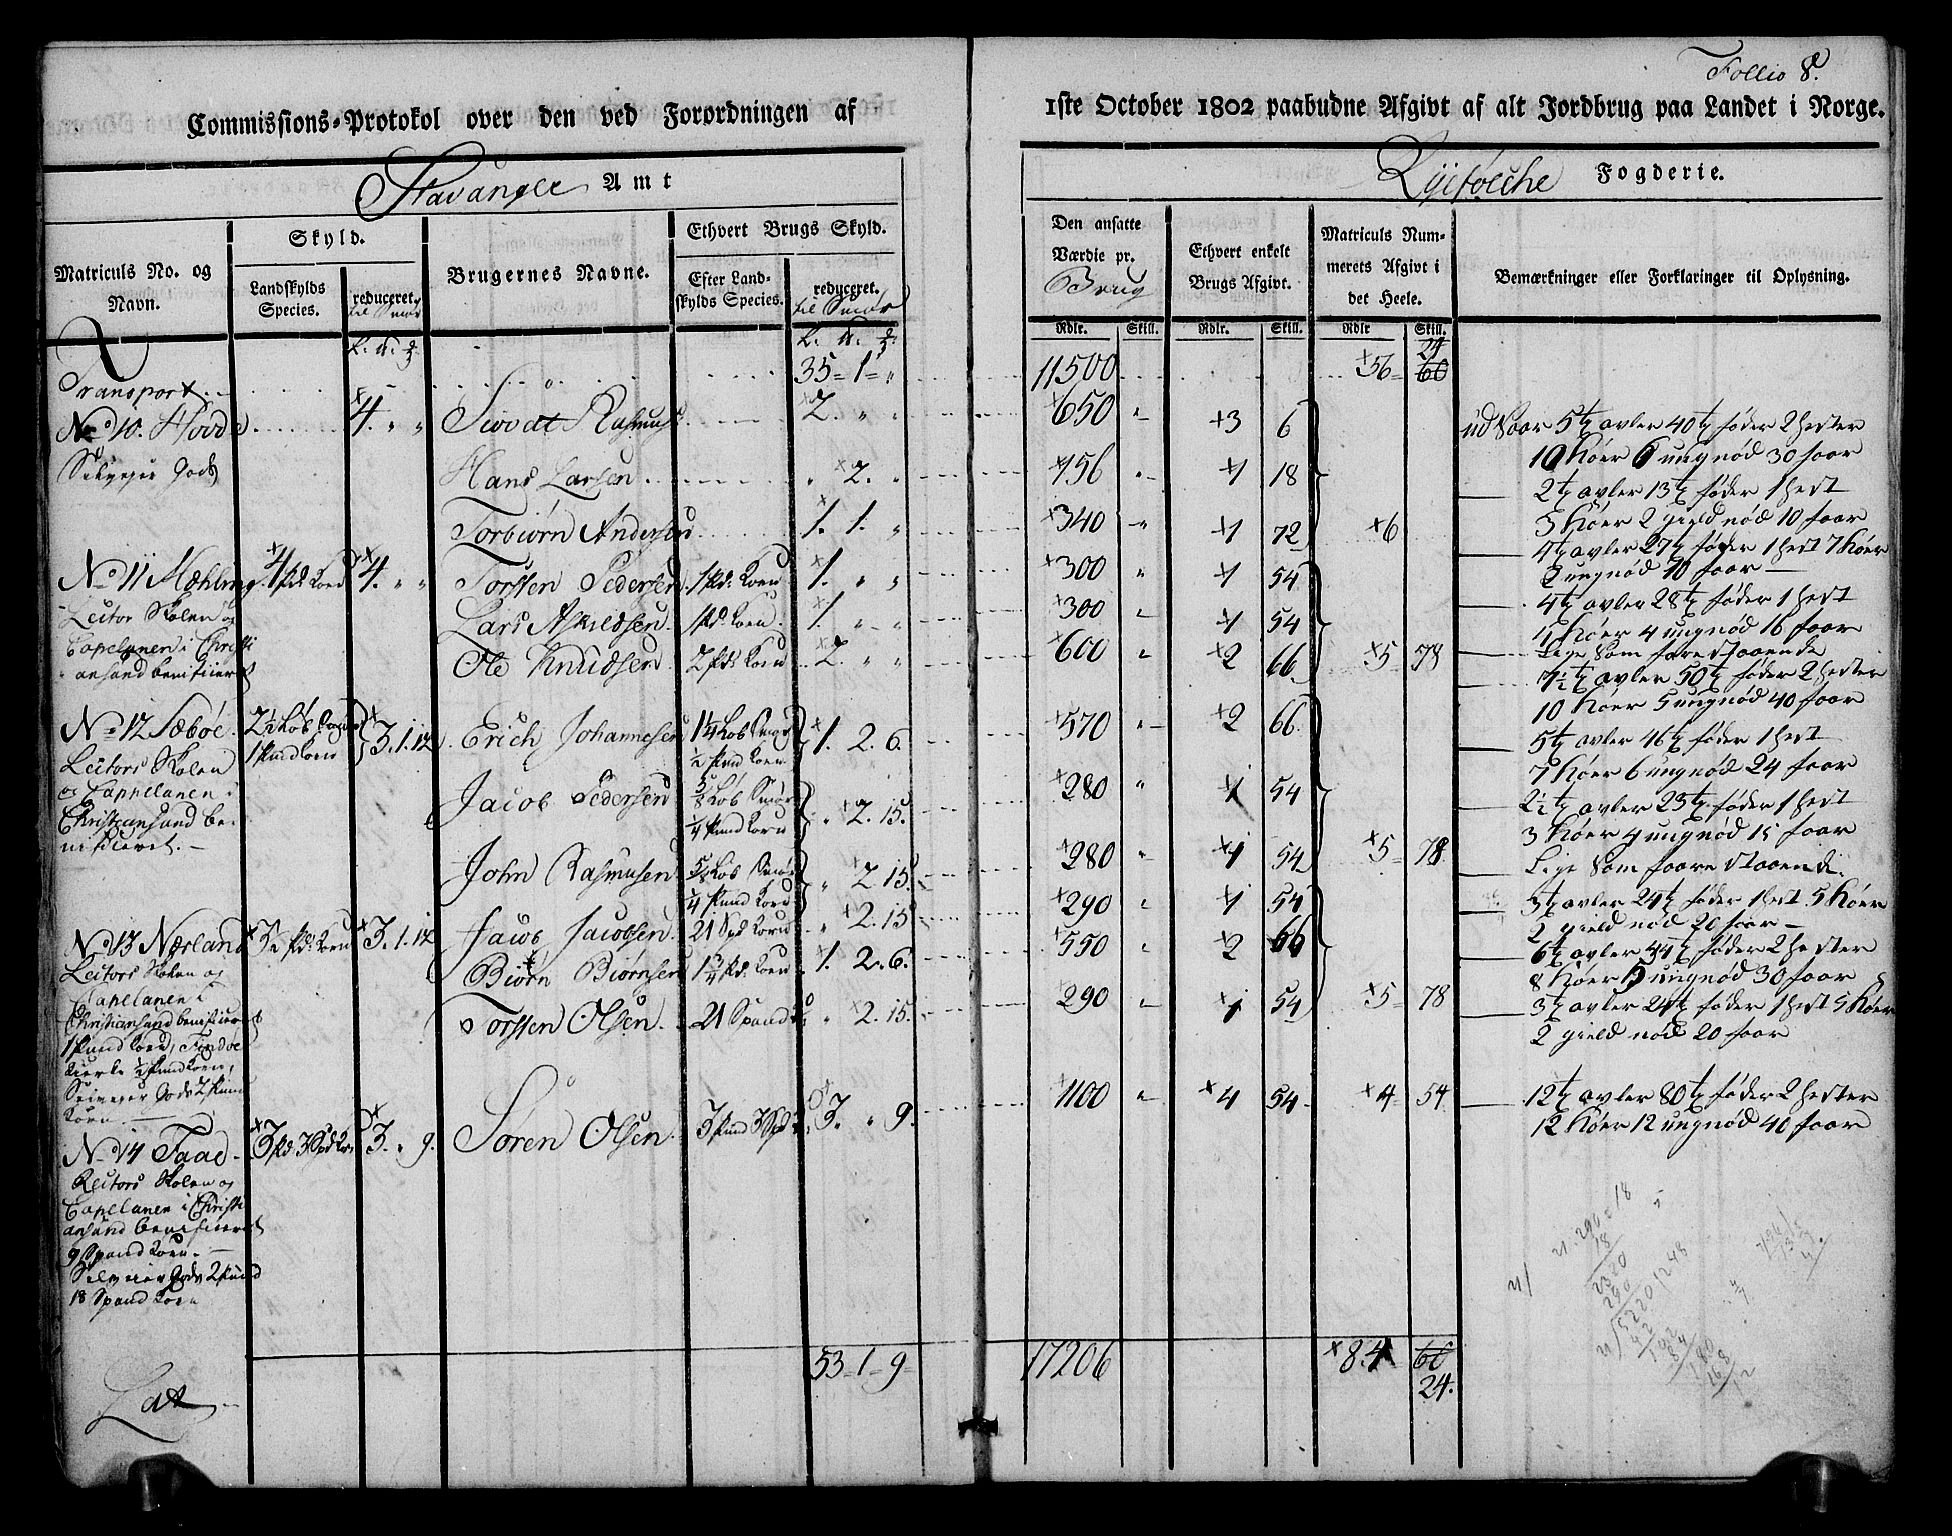 Follio 8.
Commissions-Protokol over den ved Forordningen af 1ste October 1802 paabudne Afgivt af alt Jordbrug paa Landet i Norge.
Stavanger Amt
Fogderie.
Matriculs No. og Navn.
Skyld.
Landskylds Species.
reduceret. til Smør
Brugernes Navne.
Ethvert Brugs Skyld.
Efter Landskylds Species.
reduceret. til Smør
Den ansatte Værdie pr. Brug
Ethvert enkelt Brugs Afgivt.
Matriculs Nummerets Afgivt i det Heele.
Bemærkninger eller Forklaringer til Oplysning.
Rdlr. Skill. Rdlr. Skill. Rdlr Skill.
Transport 35 = 1 = " 11500 56 60 24
No 10. Hovde 4. " " Sivodt Rasmus 2. " " 650 " 3 6 ud Saar 5 t avler 40 t føder 2 hester
Selveier Gods 10 Køer 6 ungnød 30 faar
Hans Larsen " 2. " 156 " 1 18 2 t avler 13 t føder 1 hest
3 Køer 2 gield nød 10 faar
Torbiørn Andersen 1. 1. " 340 " 1 72 6 4 t avler 27 t føder 1 hest 7 Køer
2 ungnød 10 faar
No 11 Mæhlum 4 pd: Korn 4. " " Torsten Pedersen 1 pd: Korn 1. " " 300 " 1 54 4 t avler 28 t føder 1 hest
4 Køer 4 ungnød 16 faar
Lector Skolen og
Capelanen i Christiansand benificeret
Lars Askildsen 1 pd: Korn 1. " " 300 " 1 54 Lige Som forestaaende
Ole Knudsen 2 pd: Korn 2. " " 600 " 2 66 5 78 7½ t avler 50 t føder 2 hester
10 Køer 5 ungnød 40 faar
No 12 Sæbøe 2½ Løb Smør 1 Pund Korn 3. 1. 12 Erich Johannesen 1¼ Løb Smør ½ Pund Korn 1. 2. 6. 570 " 2 66 5 t avler 46 t føder 1 hest
7 Køer 6 ungnød 24 faar
Lectors Skolen
og Cappelanen i
Christiansand benificeret.
Jacob Pedersen ⅝ Løb Smør ¼ Pund Korn " 2. 15. 280 " 1 54 2½ t avler 23 t føder 1 hest
3 Køer 4 ungnød 15 faar
John Rasmusen ⅝ Løb Smør ¼ Pund Korn " 2 15. 280 " 1 54 5 78 Lige Som faarestaaende
No 13 Nærland 3½ pd: Korn 3. 1. 12 Jacob Jacobsen 21 Spd Korn " 2. 15 290 " 1 54 3 t avler 24 t føder 1 hest 5 Køer
2 gield nød 20 faar
Lectors Skolen og
Capelanen i
Christiansand benificeret
1 Pund Korn,
Kierke ½ Pund Korn,
Selveier Gods 2 Pund
Korn.
Biørn Biørnsen 1¾ pd. Korn 1. 2. 6. 550 " 2 66 6 t avler 44 t føder 2 hester
8 Køer 5 ungnød 30 faar
Torsten Olsen 21 Spand " 2. 15. 290 " 1 54 5 78 3 t avler 24 t føder 1 hest 5 Køer
2 gield nød 20 faar
No 14 Taae 3 pd. 3 Spd Korn 3. " 9. Søren Olsen 3 Pund 3 Spd 3. " 9. 1100 " 4 54 4 54 12 t avler 80 t føder 2 hester
12 Køer 12 ungnød 40 faar
Rectors Skolen og
Capelanen i Christiansand benificeret
9 Spand Korn.
Selveier Gods 2 Pund
18 Spand Korn
Lat 53 = 1 = 9 = 17206 84 60
24.